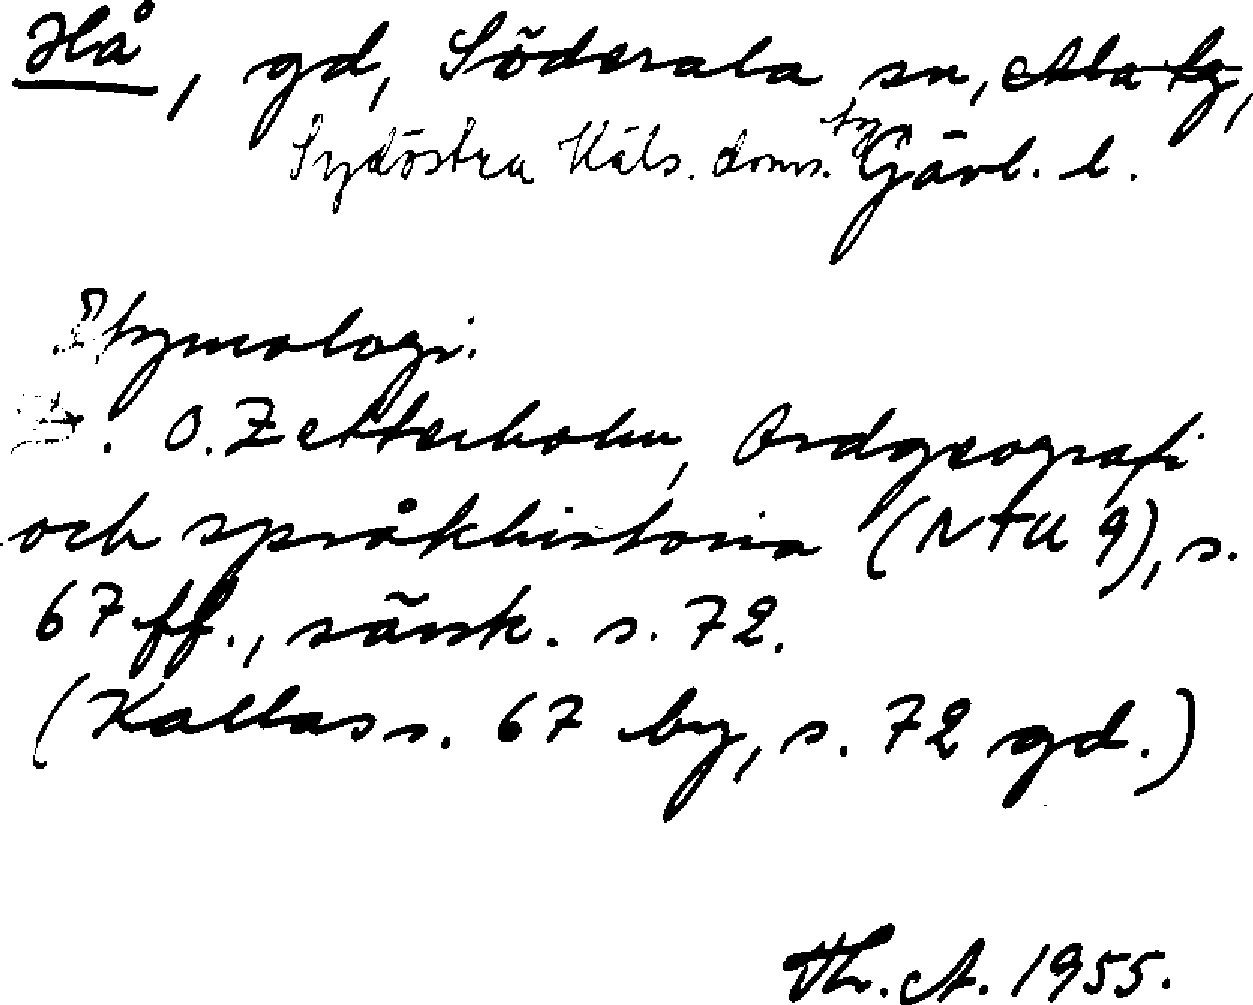 Hå, gd, Söderala sn, Ala tg,
Sydöstra Häls. doms. tg Gävl. l.
Etymologi.
D. O. Zetterholm, Ordgeografi
och språkhistoria (NTU 9), s.
67 ff., särsk. s. 72.
(Kallas s. 67 by, s. 72 gd.)
Th. A. 1955.